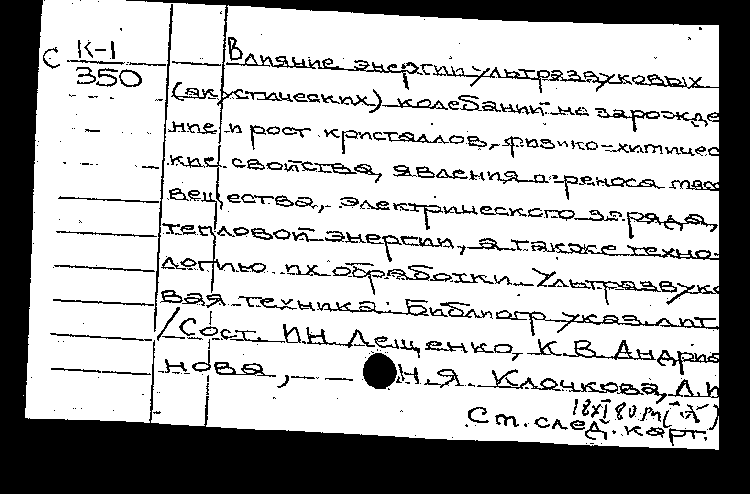 С К-1
350
Влияние энергии ультразвуковых
(акустических) колебаний на зарожде
ние и рост кристаллов, физико-химичес
кие свойства, явления переноса масс
вещества, электрического заряда,
тепловой энергии, а также техно-
логию их обработки. Ультразвуко
вая техника: Библиогр указ. лит.
/Сост. И.Н. Лещенко, К.В. Андриа
нова, Н.Я. Клочкова, Л.И
18XI80
См. след. карт.